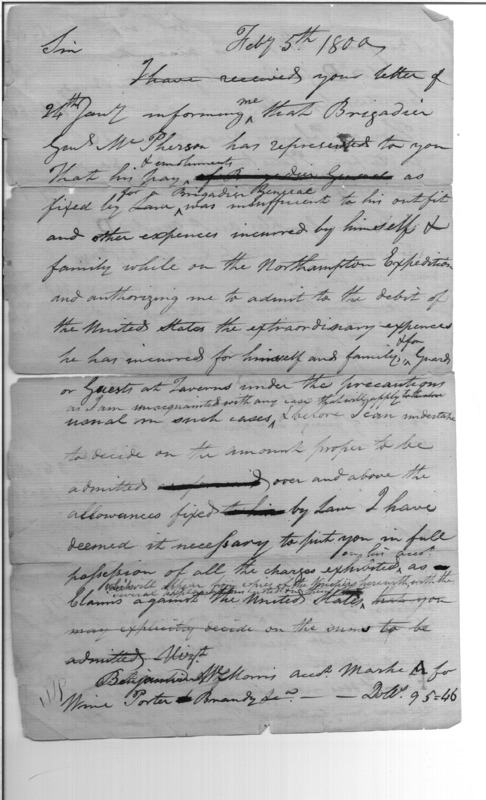 Feby 5th 1800
Sir
I have received your letter of
24th Jany informing me that Brigadier
Genl McPherson has represented to you
That his pay & emoluments of Brigadier General as
fixed by Law for a Brigadier General was insufficient to his outfit
and other expences incurred by himself &
family while on the Northampton Expedition
and authorizing me to admit to the debit of
the United States the extraordinary expences
he has incurred for himself and family, & for Guards
or Guests at Taverns under the precautions
as I am unacquainted with any case that will apply to the above
usual in such cases, & before I can undertake
to decide on the amount proper to be
admitted over and above the
allowances fixed to him by Law I have
deemed it necessary to put you in full
possession of all the charges exhibited on his acct. as
which will appear from copies of the Vouchers herewith with the
several
Claims against the United States, but you
may explicitly decide on the sums to be
admitted Vizt
Benjamin W Morris acct. Marked A for
Wine Porter Brandy &ca. — — Dolls. 95-46